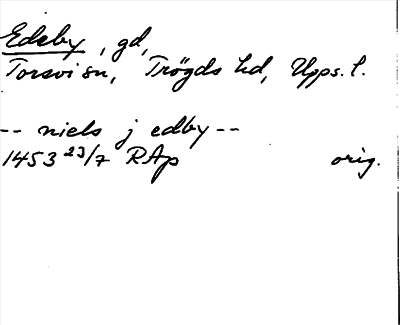 Edeby, gd,
Torsvi sn, Trögds hd, Upps. l.
-- niels j edby --
1453 23/7 RAp orig.